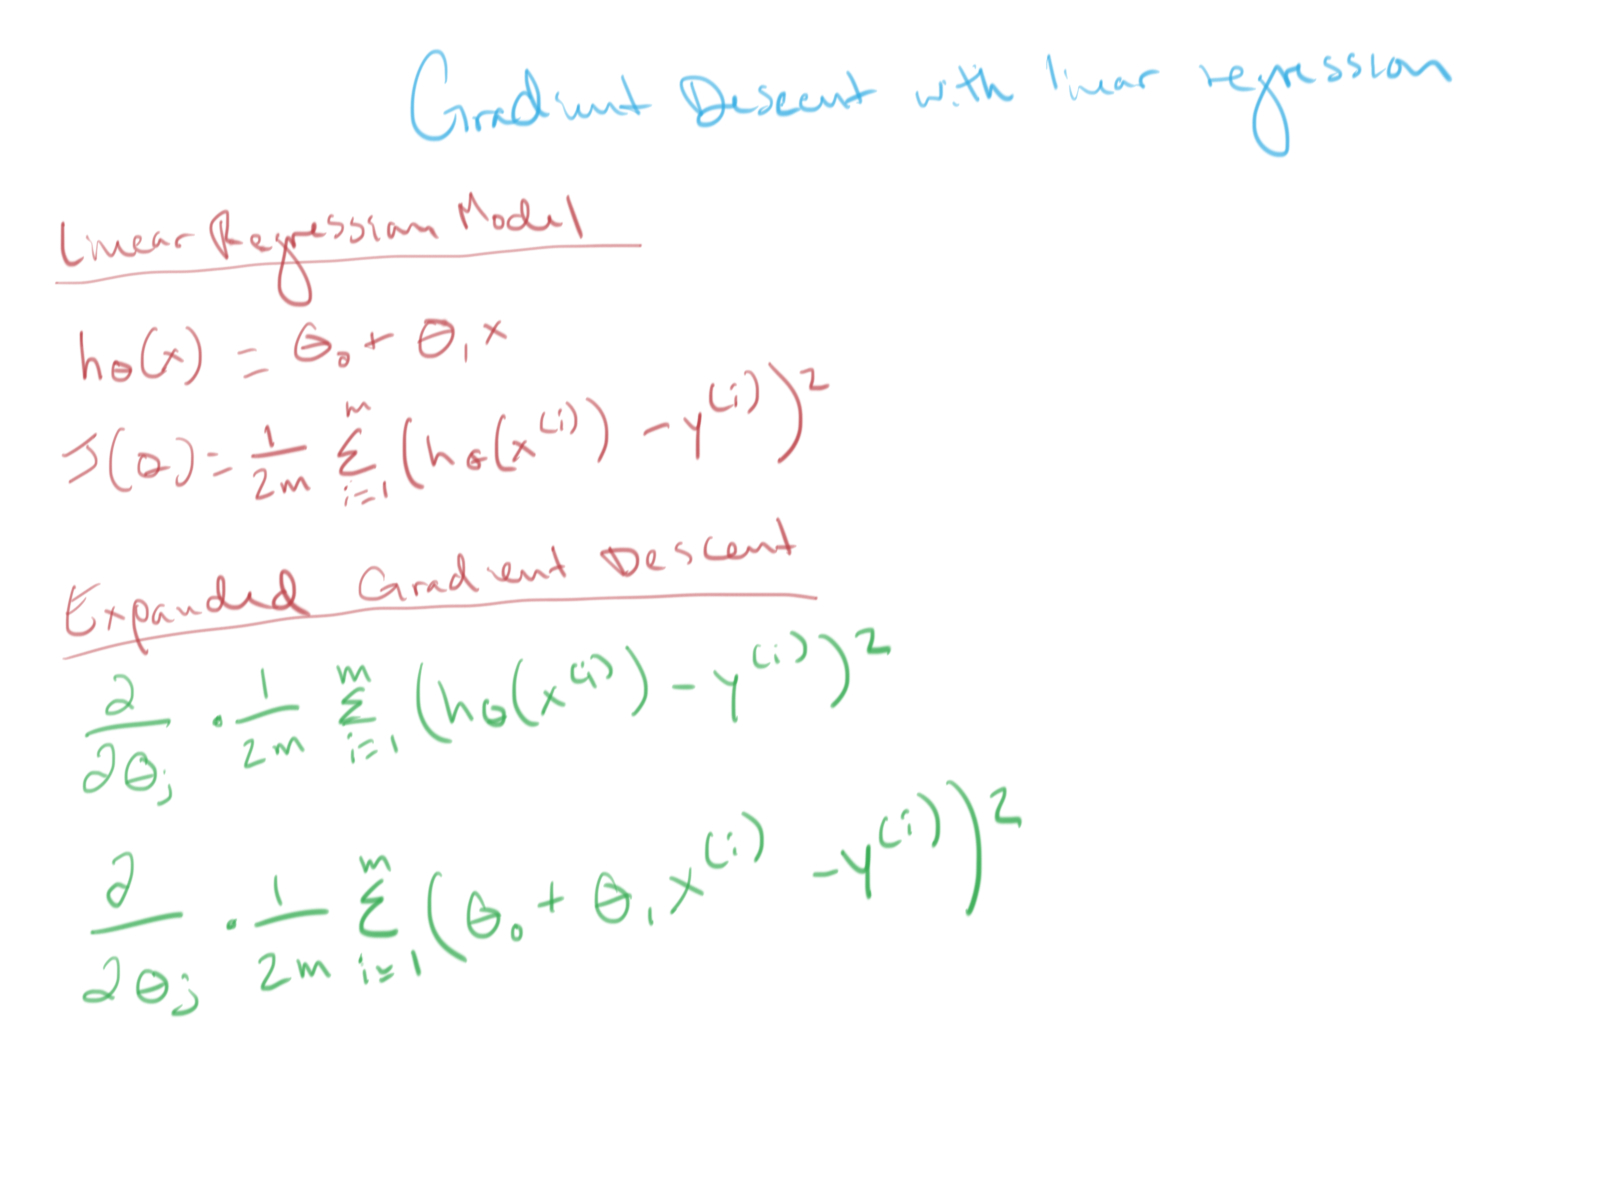 Gradient Descent with linear regression
Linear Regression Model
hθ(x) = θ₀ + θ₁x
J(θ) = 1/2m Σᵢ₌₁ᵐ (hθ(x⁽ⁱ⁾) - y⁽ⁱ⁾)²
Expanded Gradient Descent
∂/∂θⱼ · 1/2m Σᵢ₌₁ᵐ (hθ(x⁽ⁱ⁾) - y⁽ⁱ⁾)²
∂/∂θⱼ · 1/2m Σᵢ₌₁ᵐ (θ₀ + θ₁x⁽ⁱ⁾ - y⁽ⁱ⁾)²